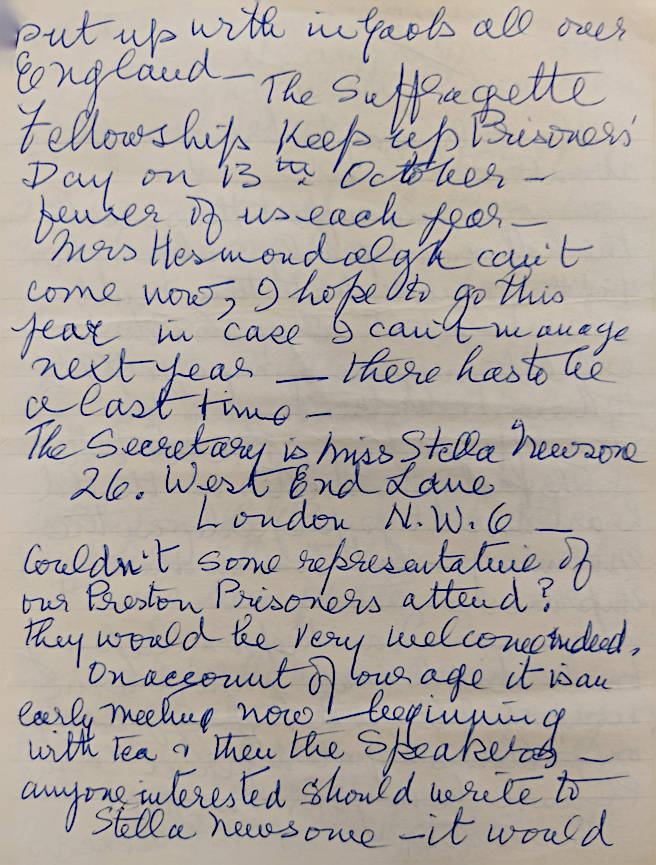 put up with in Gaols all over
England — The Suffragette
Fellowship Keep up Prisoners'
Day on 13th October —
fewer of us each year —
Mrs Hesmondalgh can't
come now, I hope to go this
year in case I can't manage
next year — there has to be
a last time —
The Secretary is Miss Stella Newsone
26. West End Lane
London N.W.6 —
Couldn't some representative of
our Preston Prisoners attend?
They would be very welcome indeed.
On account of our age it is an
early meeting now — beginning
with tea & then the Speakers —
anyone interested should write to
Stella Newsome — it would